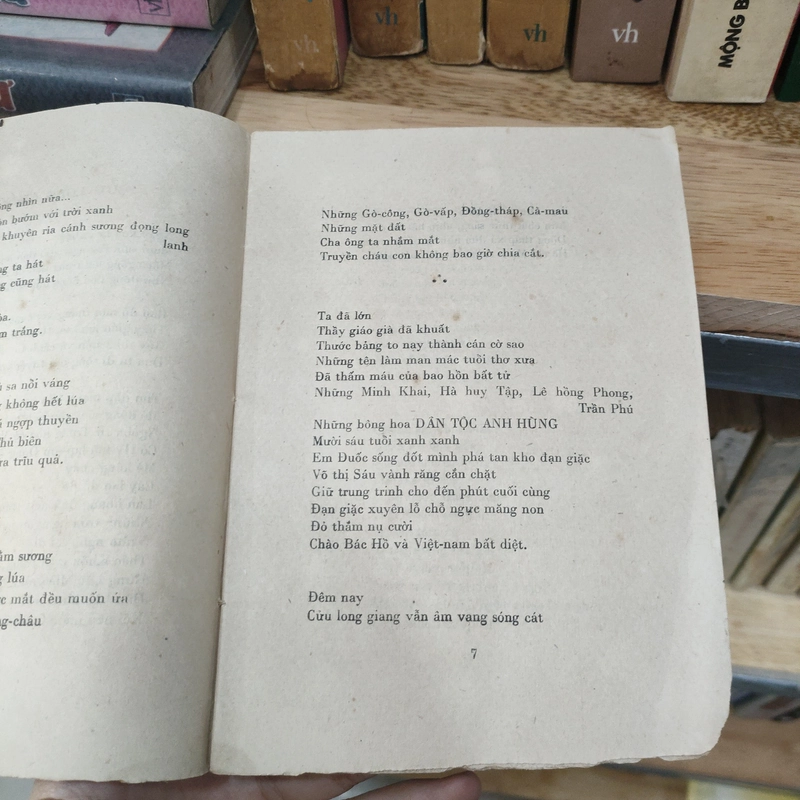 vh
vh
vh
MỘNG B
nhìn nữa...
bướm với trời xanh
khuyên ria cánh sương đọng long
lanh
ta hát
cũng hát
trắng.
sa nồi váng
không hết lúa
ngợp thuyền
biên
trĩu quả.
sương
lúa
mắt đều muốn ứa
Những Gò-công, Gò-vấp, Đồng-tháp, Cà-mau
Những mặt đất
Cha ông ta nhắm mắt
Truyền cháu con không bao giờ chia cắt.
Ta đã lớn
Thầy giáo già đã khuất
Thước bảng to nay thành cán cờ sao
Những tên làm man mác tuổi thơ xưa
Đã thấm máu của bao hồn bất tử
Những Minh Khai, Hà huy Tập, Lê hồng Phong,
Trần Phú
Những bông hoa DÂN TỘC ANH HÙNG
Mười sáu tuổi xanh xanh
Em Đuốc sống đốt mình phá tan kho đạn giặc
Võ thị Sáu vành răng cắn chặt
Giữ trung trinh cho đến phút cuối cùng
Đạn giặc xuyên lỗ chỗ ngực măng non
Đỏ thắm nụ cười
Chào Bác Hồ và Việt-nam bất diệt.
Đêm nay
Cửu long giang vẫn âm vang sóng cát
7